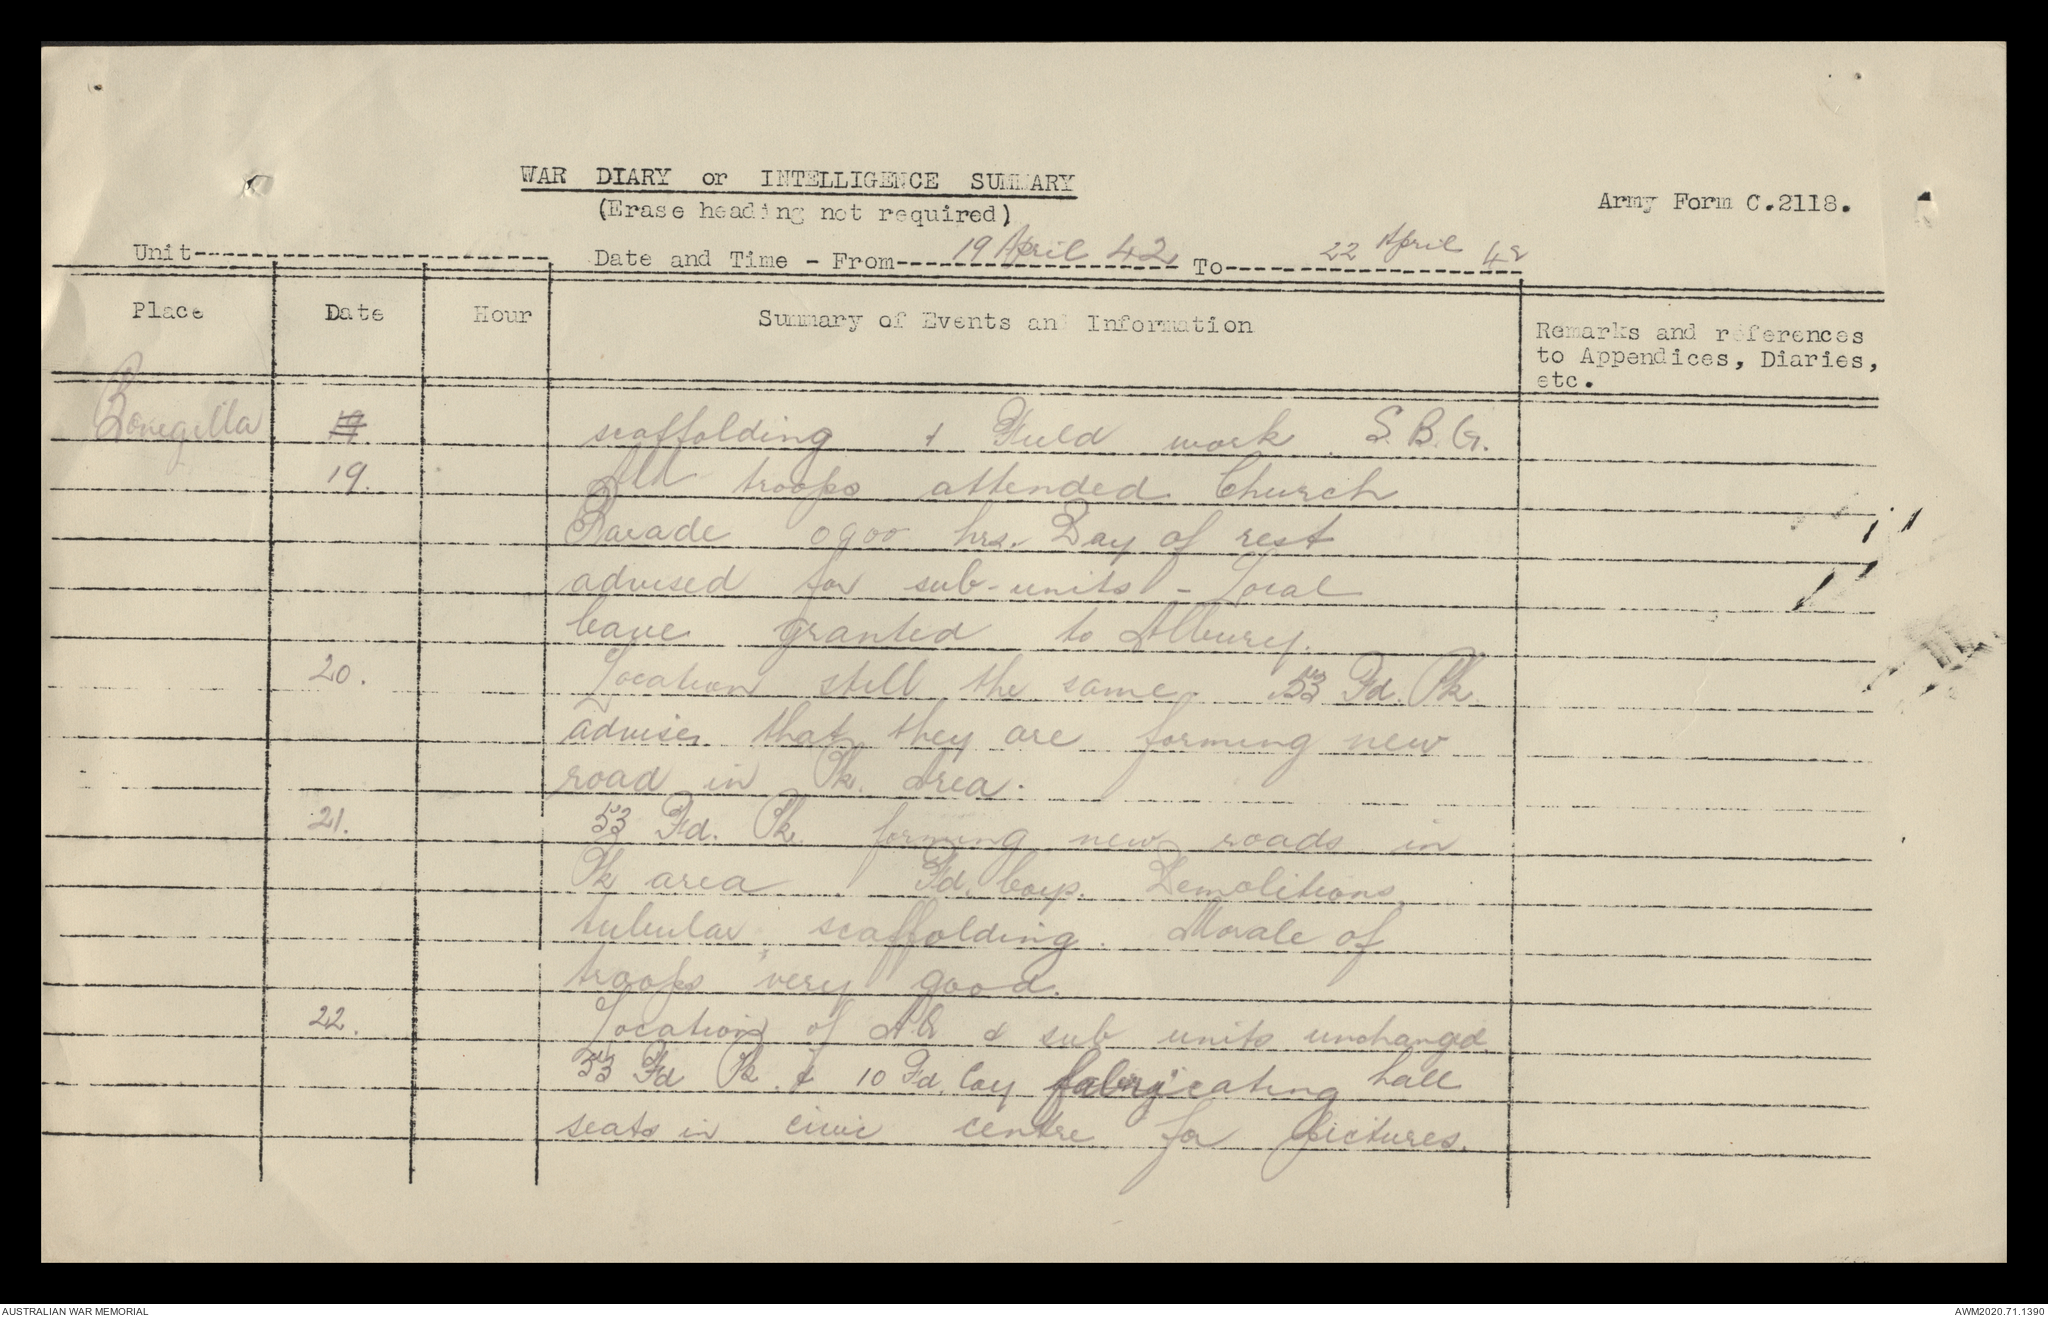 WAR DIARY or INTELLIGENCE SUMMARY
(Erase heading not required)
Army Form C.2118.
Unit
Date and Time - From 19 April 42 To 22 April 42
Place Date Hour Summary of Events and Information Remarks and references
to Appendices, Diaries,
etc.
Bonegilla 19 scaffolding & Field work. S.B.G.
19. All troops attended Church
Parade 0900 hrs. Day of rest
advised for sub-units - Local
leave granted to Albury.
20. Location still the same. 53 Fd. Pk
advises that they are forming new
road in Pk. Area.
21. 53 Fd. Pk. forming new roads in
Pk area. Fd. Coys. Demolitions,
tubular scaffolding. Morale of
troops very good.
22. Location of & sub units unchanged
53 Fd Pk. & 10 Fd. Coy fabricating hall
seats in civic centre for pictures.
AUSTRALIAN WAR MEMORIAL
AWM2020.71.1390